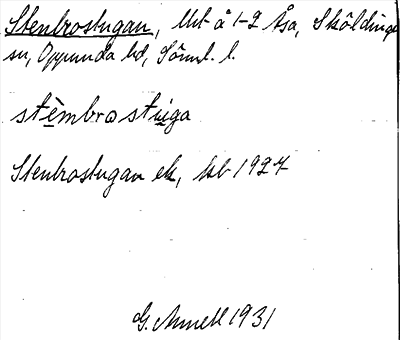 Stenbrostugan, Utt å 1-2 Åsa, Sköldinge
sn, Oppunda hd, Söml. l.
stèmbrostuga
Stenbrostugan ek, kb 1927
G. Annell 1931